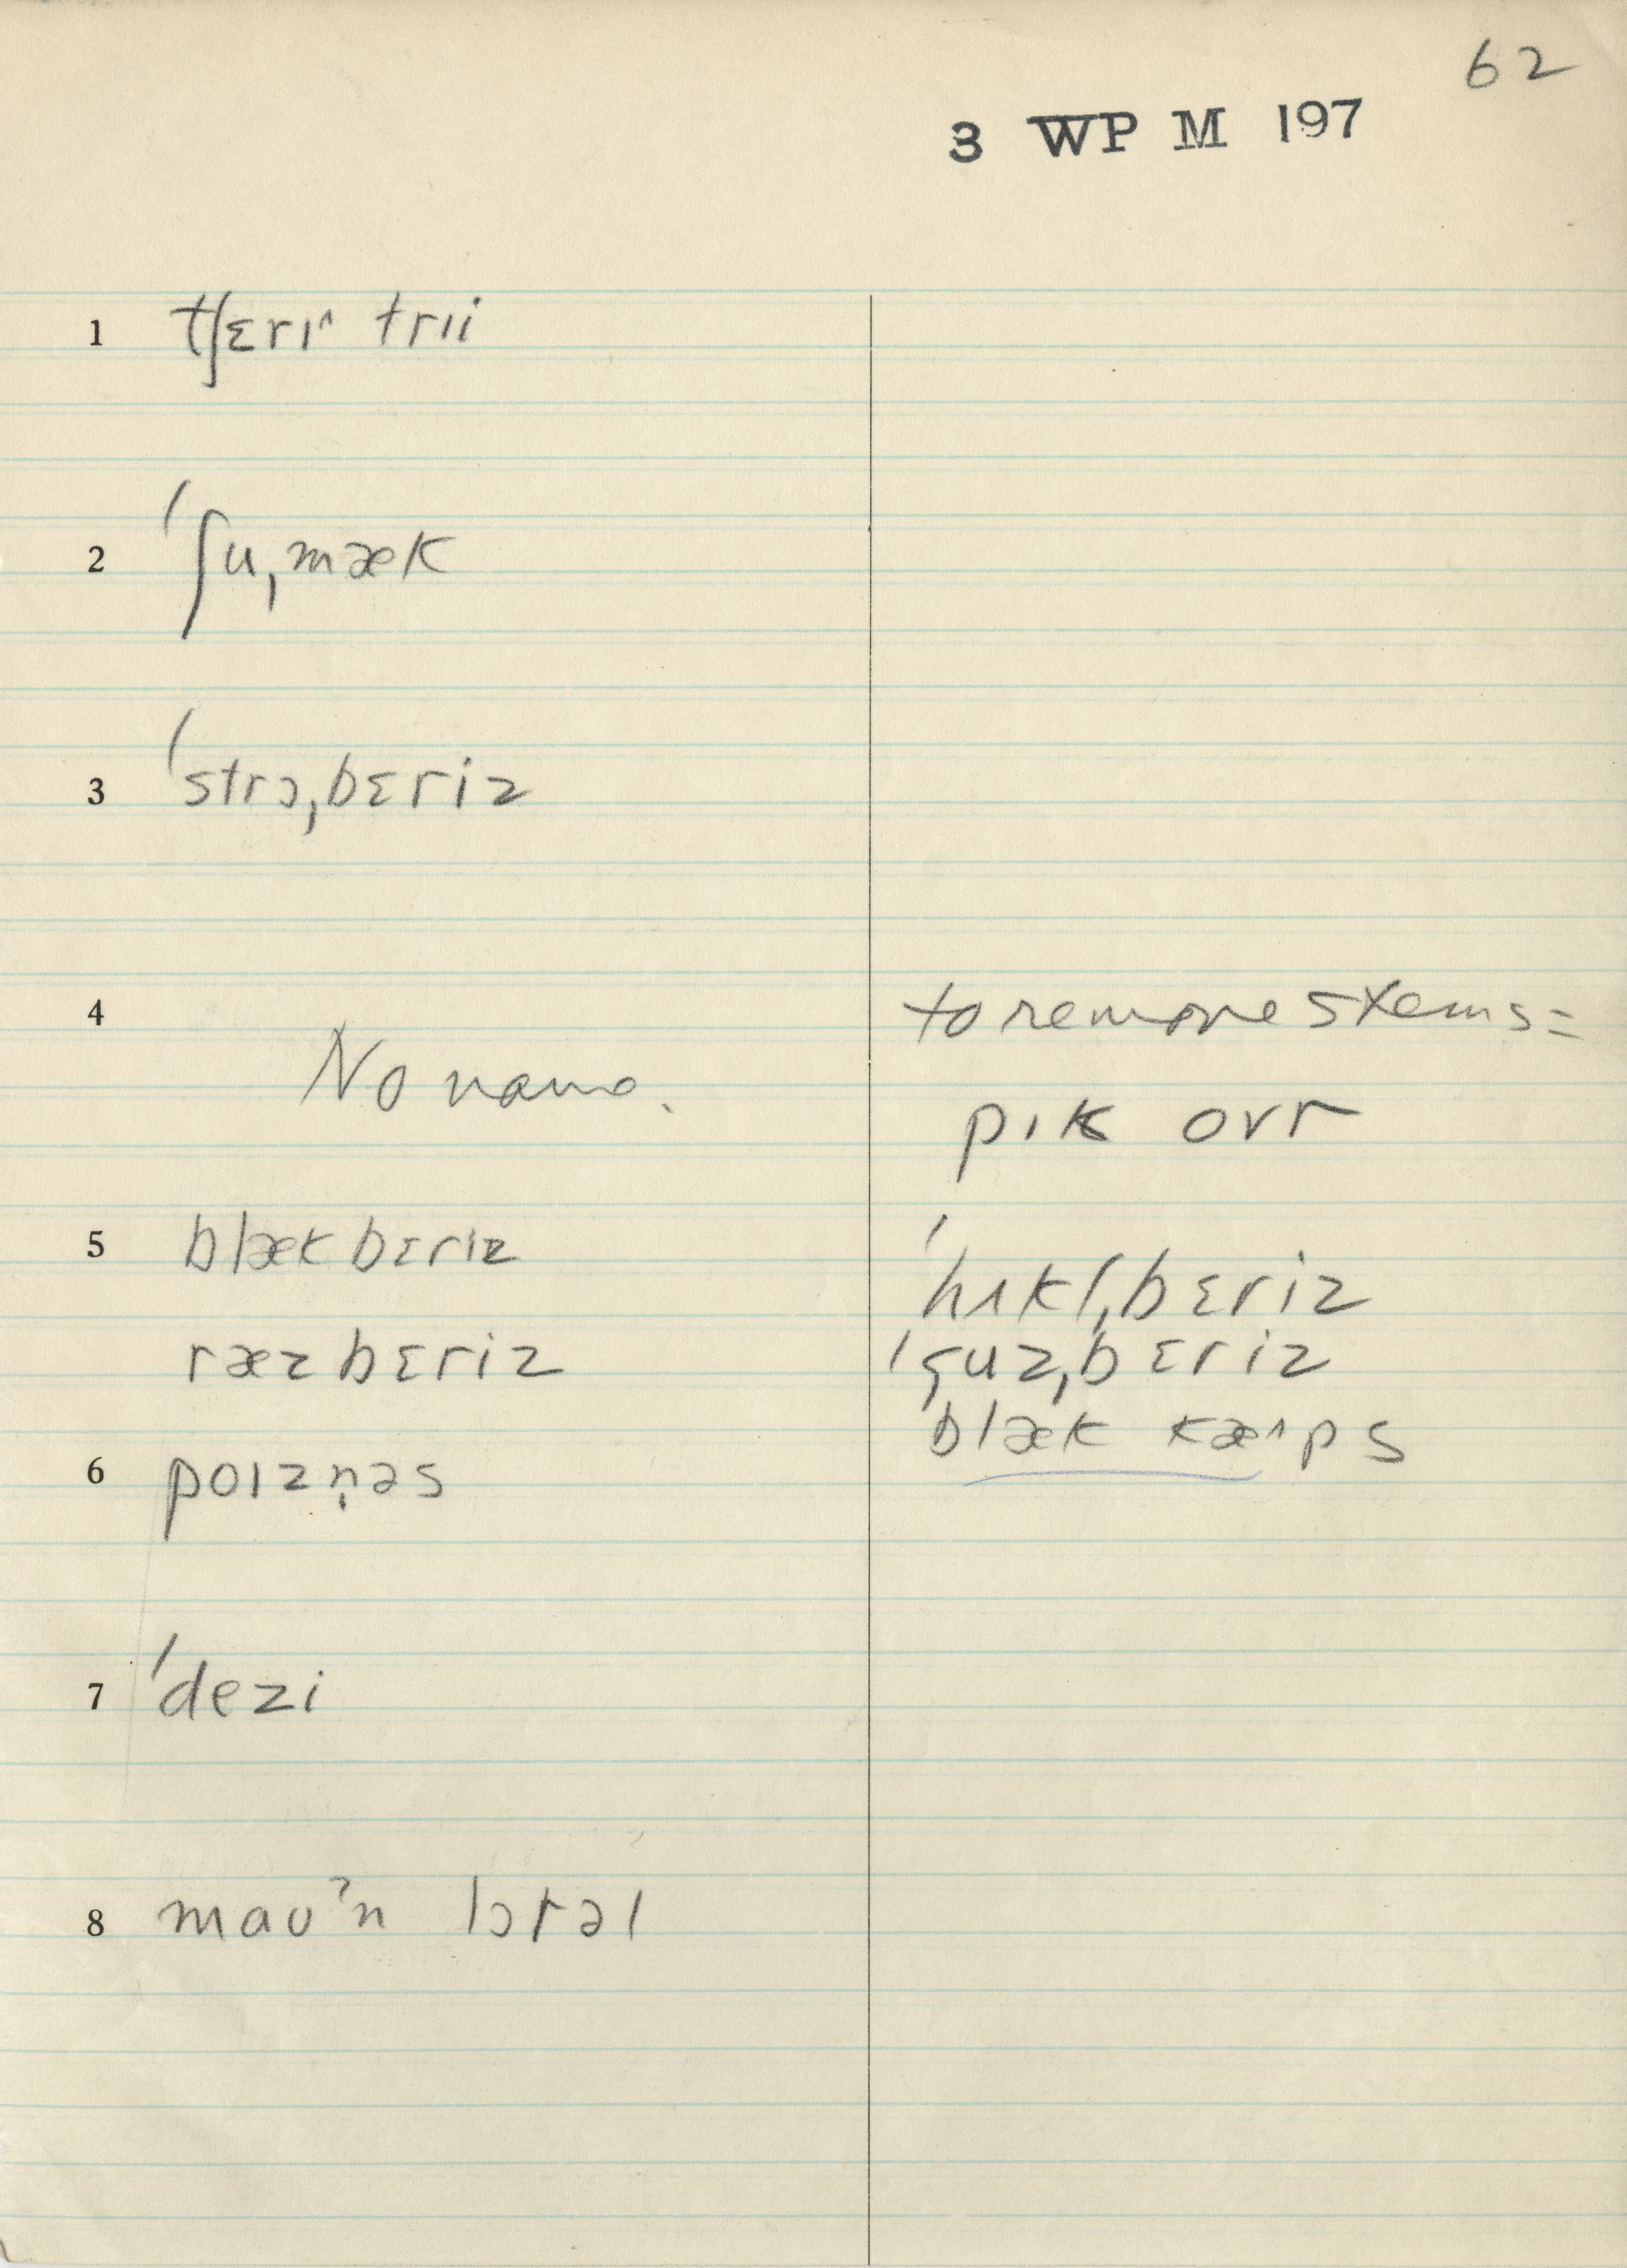 62
3 WP M 197
1 tʃɛrɪ^ trɪi
2 ˈʃuˌmæk
3 ˈstrɔˌbɛriz
4 No name.
to remove stems =
pɪk ovr
5 blækbɛriz
ræzbɛriz
ˈhʌklˌbɛriz
ˈguzˌbɛriz
blæk kæ^ps
6 pɔɪzn̩əs
7 ˈdezi
8 maʊʔn lɔrəl